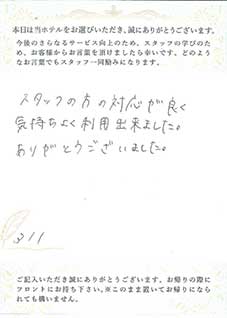 本日は当ホテルをお選びいただき、誠にありがとうございます。
今後のさらなるサービス向上のため、スタッフの学びのため、お客様からお言葉を頂けましたら幸いです。どのようなお言葉でもスタッフ一同励みになります。
スタッフの方の対応が良く
気持ちよく利用出来ました。
ありがとうございました。
311
ご記入いただき誠にありがとうございます。お帰りの際に
フロントにお持ち下さい。※このまま置いてお帰りになられても構いません。